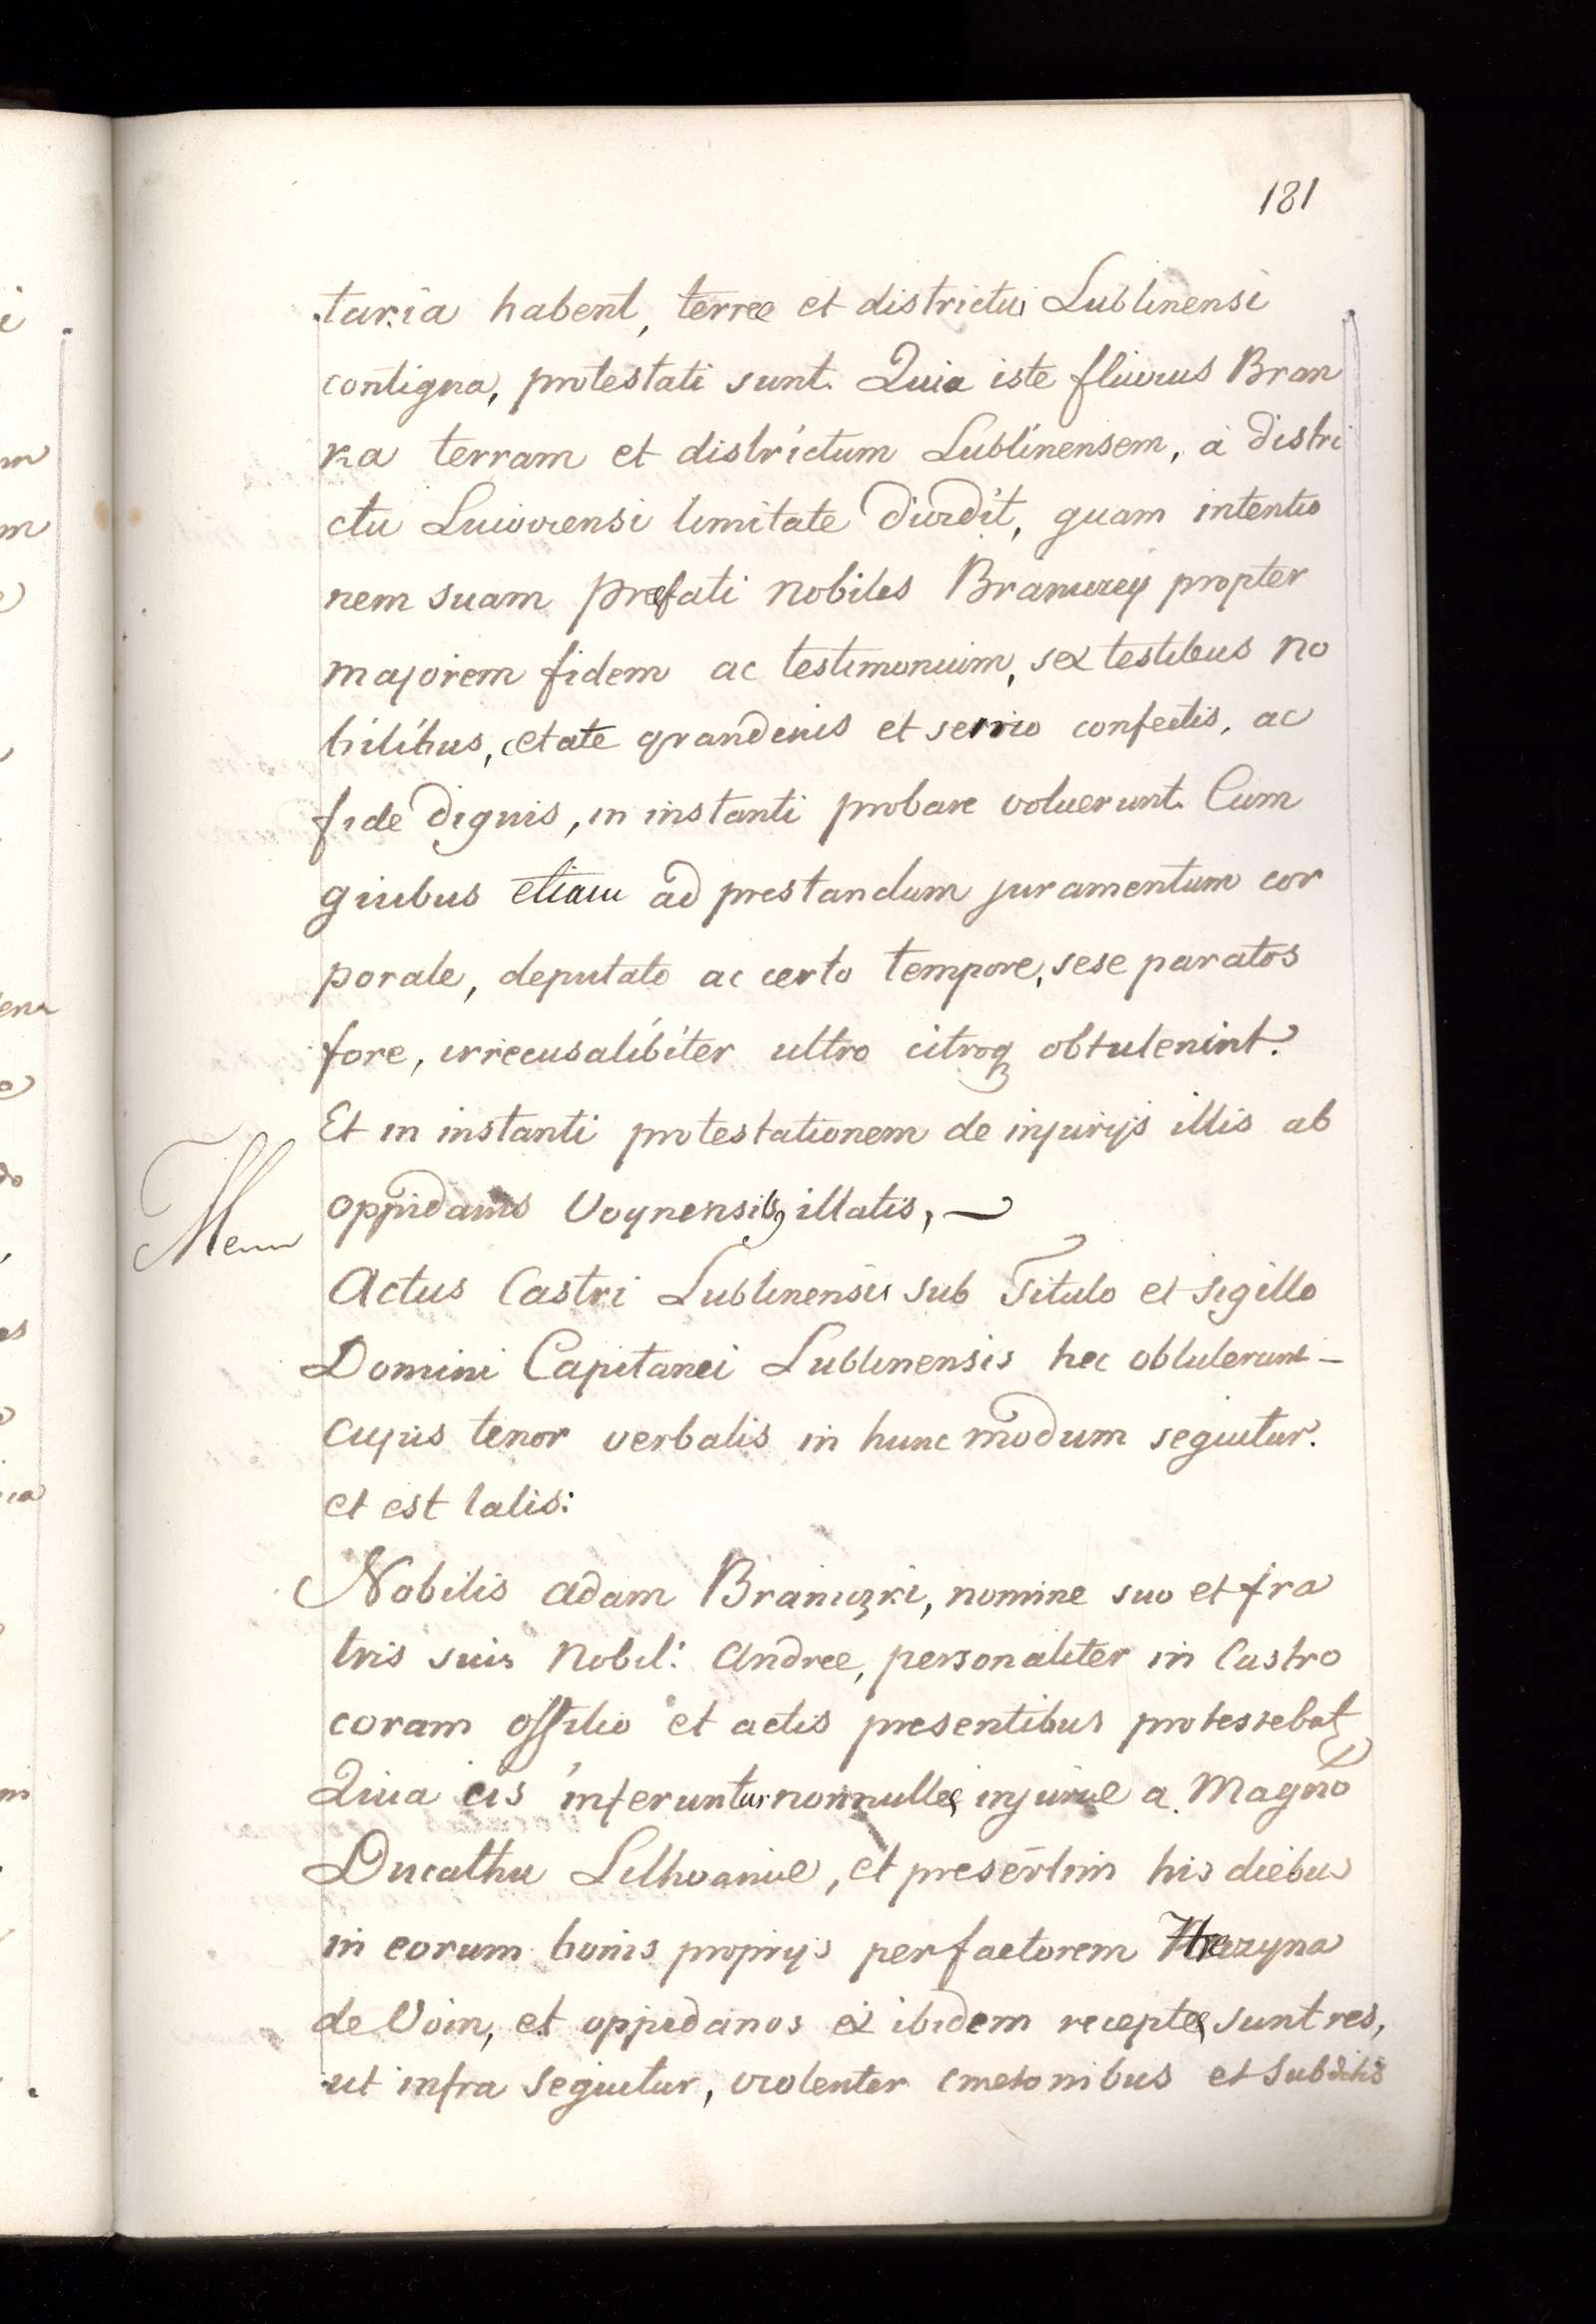 181
taria habent, terræ et districtui Lublinensi
contigua, protestati sunt. Quia iste fluvius Bran
ka terram et districtum Lublinensem, a distri
ctu Lucoviensi limitate dividit, quam intentio
nem suam præfati Nobiles Braniczcy propter
majorem fidem ac testimonium, sex testibus no
bilibus, ætate grandevis et senio confectis, ac
fide dignis, in instanti probare voluerunt. Cum
quibus etiam ad prestandum juramentum cor
porale, deputato ac certo tempore, sese paratos
fore, irrecusalibiter ultro citroq obtulerunt.
Et in instanti protestationem de injurijs illis ab
oppidanis Voynensibq illatis, —
Actus Castri Lublinensis sub Titulo et sigillo
Domini Capitanei Lublinensis hec obtulerunt –
cujus tenor verbalis in hunc modum sequitur.
et est talis:
Nobilis Adam Braniczki, nomine suo et fra
tris suis Nobil: Andreæ, personaliter in Castro
coram officio et actis presentibus protestebat
Quia eis inferuntur nonnullæ injuriæ a Magno
Ducathu Lithvaniæ, et presertim his diebus
in eorum bonis proprijs per factorem
de Voin, et oppidanos ex ibidem receptæ sunt res,
ut infra sequitur, violenter cmetonibus et subditis